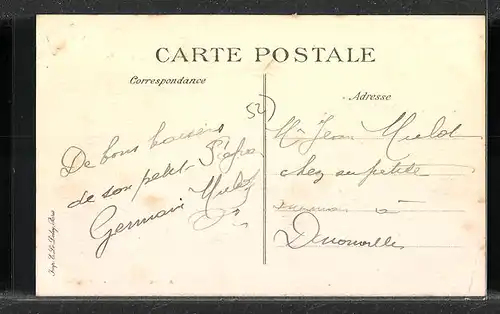 CARTE POSTALE
Correspondance
Adresse
52)
De bons baisers
de son petit
Germain Mulot
Mr Jean Mulot
chez sa petite
à